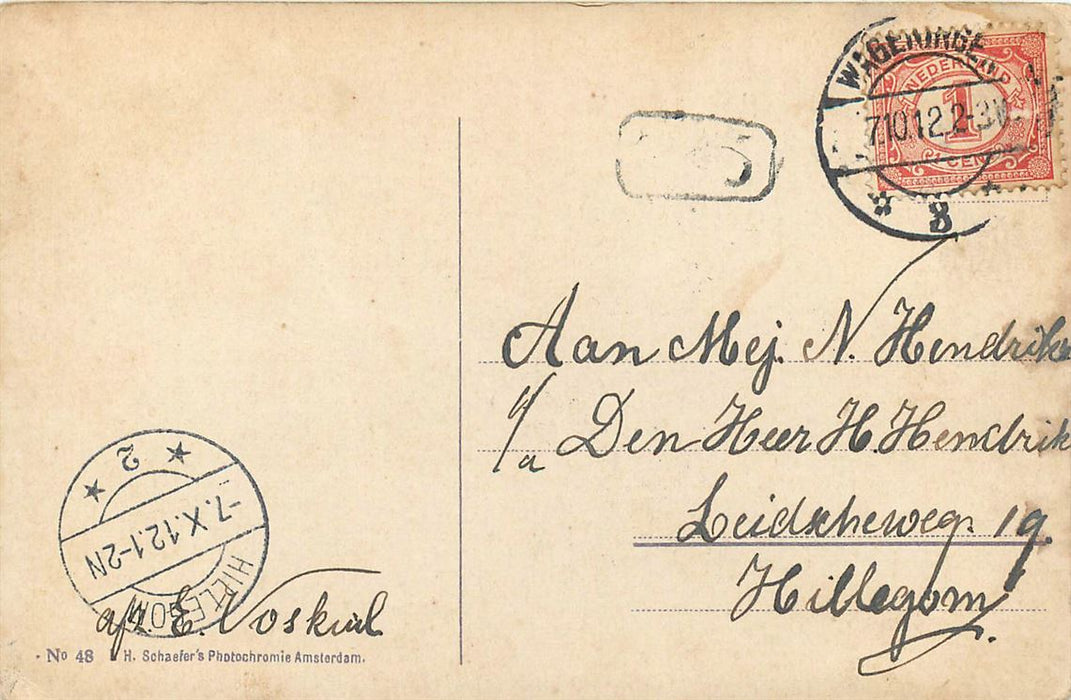 WAGENINGEN
7.10.12.2-3N.
8
NEDERLAND
1
CENT
Aan Mej. N. Hendrik
p/a Den Heer H. Hendrik
Leidscheweg. 19.
Hillegom.
2
-7.X.12.1-2N
HILLEGOM
afz. E. Voskuil
No 48 H. Schaefer's Photochromie Amsterdam.